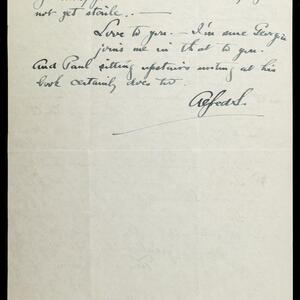 not yet sterile. . —
Love to you. — I'm sure Georgia
joins me in that to you.
And Paul sitting upstairs writing at his
book certainly does too.
Alfred S.